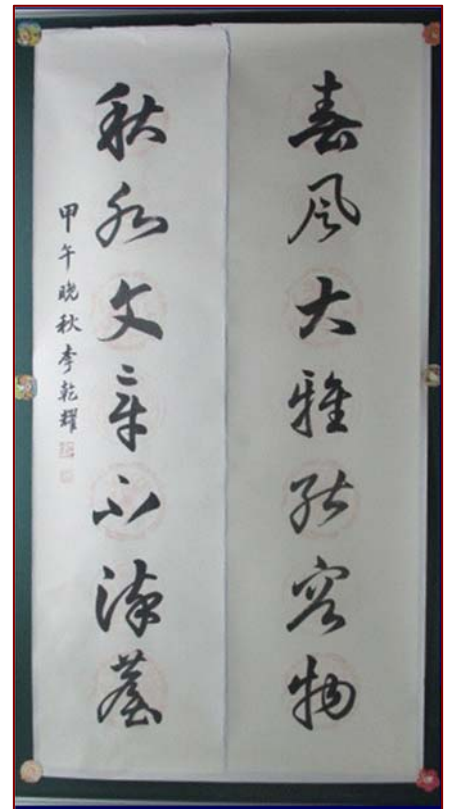 春风大雅能容物
秋水文章不染塵
甲午晚秋李乾耀